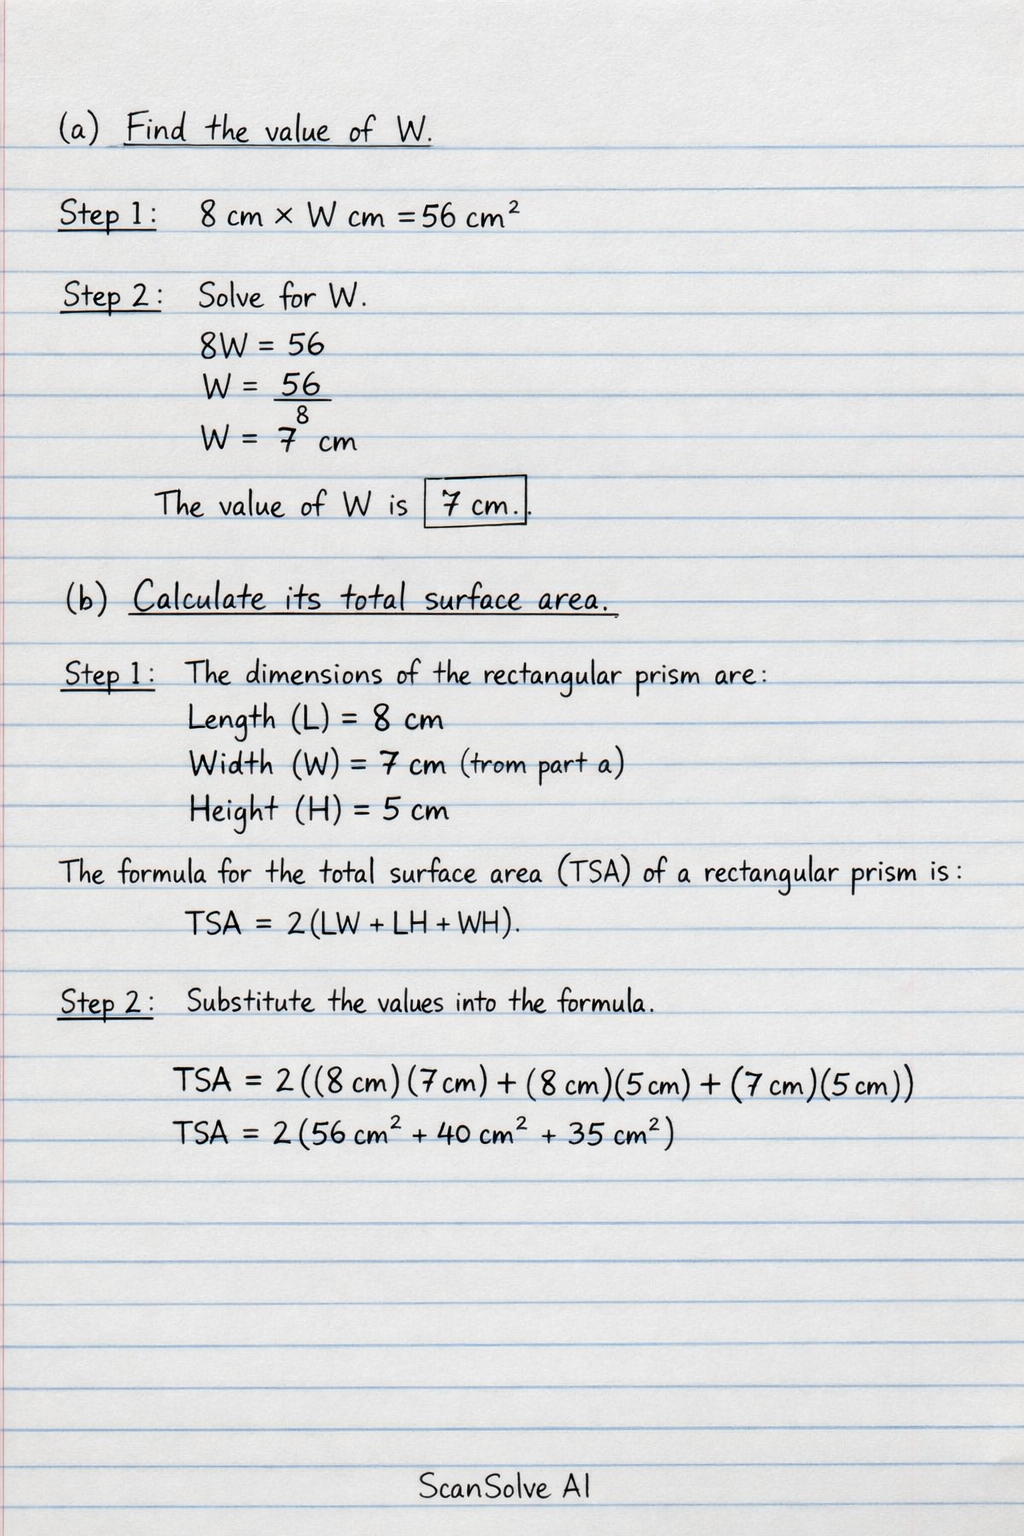 (a) Find the value of W.
Step 1: 8 cm × W cm = 56 cm²
Step 2: Solve for W.
8W = 56
W = 56/8
W = 7 cm
The value of W is 7 cm..
(b) Calculate its total surface area.
Step 1: The dimensions of the rectangular prism are:
Length (L) = 8 cm
Width (W) = 7 cm (trom part a)
Height (H) = 5 cm
The formula for the total surface area (TSA) of a rectangular prism is:
TSA = 2(LW + LH + WH).
Step 2: Substitute the values into the formula.
TSA = 2((8 cm)(7cm) + (8 cm)(5cm) + (7cm)(5cm))
TSA = 2(56 cm² + 40 cm² + 35 cm²)
ScanSolve AI